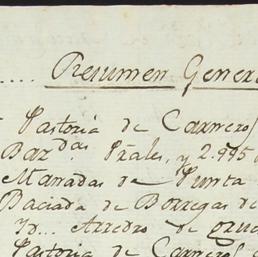 Resumen Genera
Pastoria de Carnero
Baz das P̃rales, y 2.995 d
Manadas de Punta
Baciada de Borregas de
Yd... Arredro de
Pastoria de Carnero